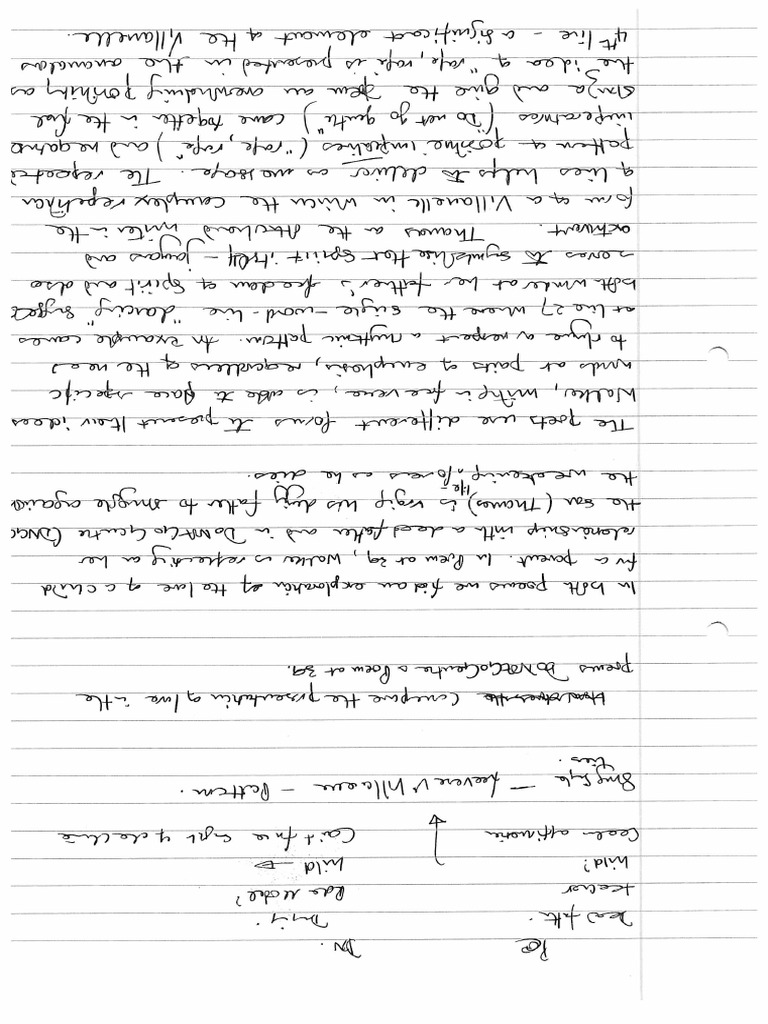 Po DN.
Dead fath. Dying.
teacher Role Model?
Wild? Wild
Cooler affirmation Can't face sight of decline
Free verse V Villanelle - Pattern.
ties.
Compare the presentation of love in the
poems DoNotGoGentle & Poem at 39.
In both poems we find an exploration of the love of a child
for a parent. In Poem at 39, Walker is reflecting on her
relationship with a dead father and in DoNotGoGentle (DNGG
the son (Thomas) is urging his dying father to struggle against
the weakening life forces as he dies.
The poets use different forms to present their ideas
Walker, writing in free verse, is able to place specific
words at points of emphasis, regardless of the need
to rhyme or respect a rhythmic pattern. An example comes
at line 27 where the single-word-line "dancing" suggest
both wonder at her father's freedom of spirit and also
serves to symbolise that spirit itself - joyous and
extrovert. Thomas on the other hand writes in the
form of a Villanelle in which the complex repetition
of lines helps to deliver as message. The repeated
pattern of positive imperatives ("rage, rage") and negative
imperatives (Do not go gentle") come together in the final
stanza and give the poem an overwhelming positivity as
the idea of "rage, rage" is presented in the anomalous
4th line - a significant element of the Villanelle.